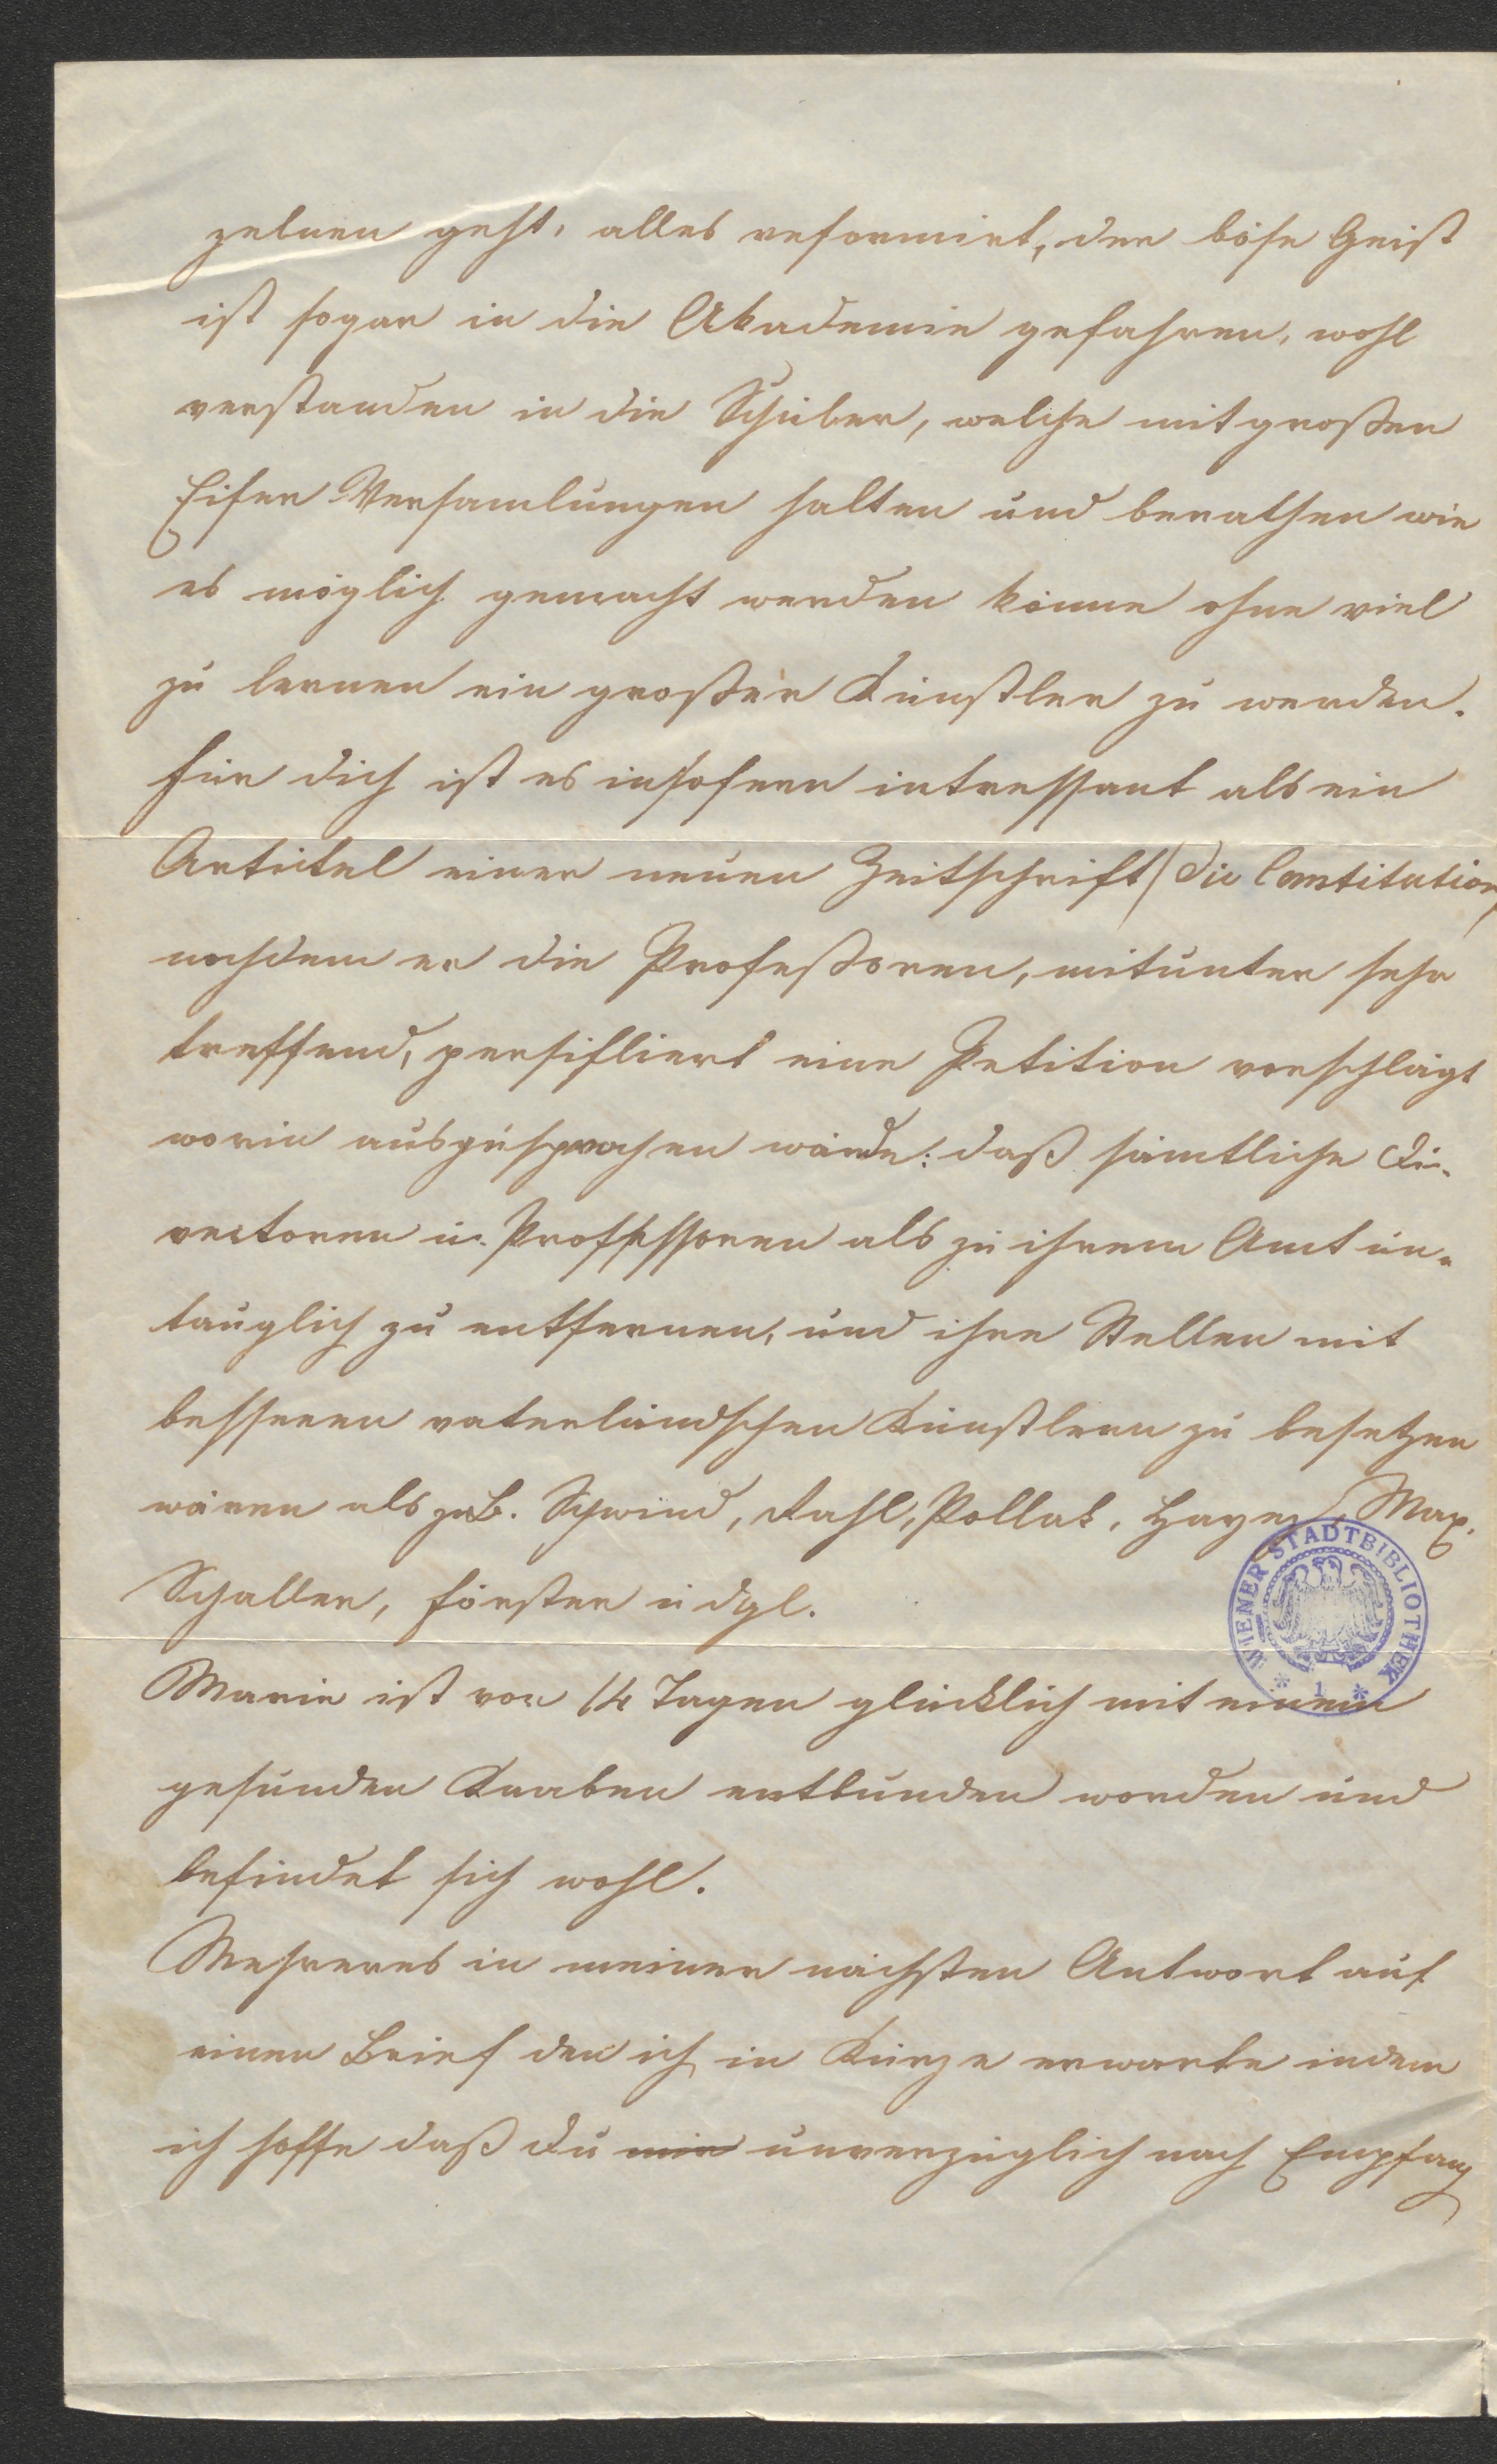 zelnen geht, alles reformirt, der böse Geist
ist sogar in die Akademie gefahren, wohl
verstanden in die Schüler, welche mit großen
Eifer Versamlungen halten und berathen wie
es möglich gemacht werden könne ohne viel
zu lernen ein großer Künstler zu werden.
Für dich ist es insofern intressant als ein
Artictel einer neuen Zeitschrift (die Constitution)
nachdem er die Profeßoren, mitunter sehr
treffend, persifliert eine Petition vorschlägt
worin ausgesprochen würde: daß sämtliche Di-
rectoren u. Proffessoren als zu ihrem Amt un-
tauglich zu entfernen, und ihre Stellen mit
besseren vaterländschen Künstlern zu besetzen
wären als z.B. Schwind, Rahl, Pollak, Hayez, Max,
Schaller, Förster u dgl.
WIENER STADTBIBLIOTHEK * 1 *
Marie ist vor 14 Tagen glücklich mit einem
gesunden Knaben entbunden worden und
befindet sich wohl.
Mehreres in meiner nächsten Antwort auf
einen Brief den ich in Kürze erwarte indem
ich hoffe daß du mir unverzüglich nach Empfang